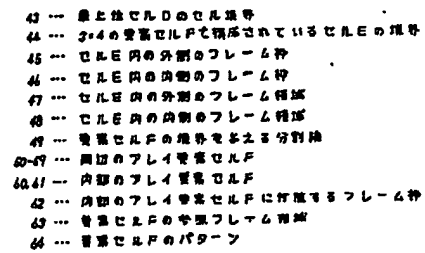 43 … 最上位セルDのセル境界
44 … 3×4の要素セルFで構成されているセルEの境界
45 … セルE内の外側のフレーム枠
46 … セルE内の内側のフレーム枠
47 … セルE内の外側のフレーム領域
48 … セルE内の内側のフレーム領域
49 … 要素セルFの境界を与える分割線
50-59 … 周辺のアレイ要素セルF
60,61 … 内部のアレイ要素セルF
62 … 内部のアレイ要素セルFに付随するフレーム枠
63 … 要素セルFの参照フレーム領域
64 … 要素セルFのパターン